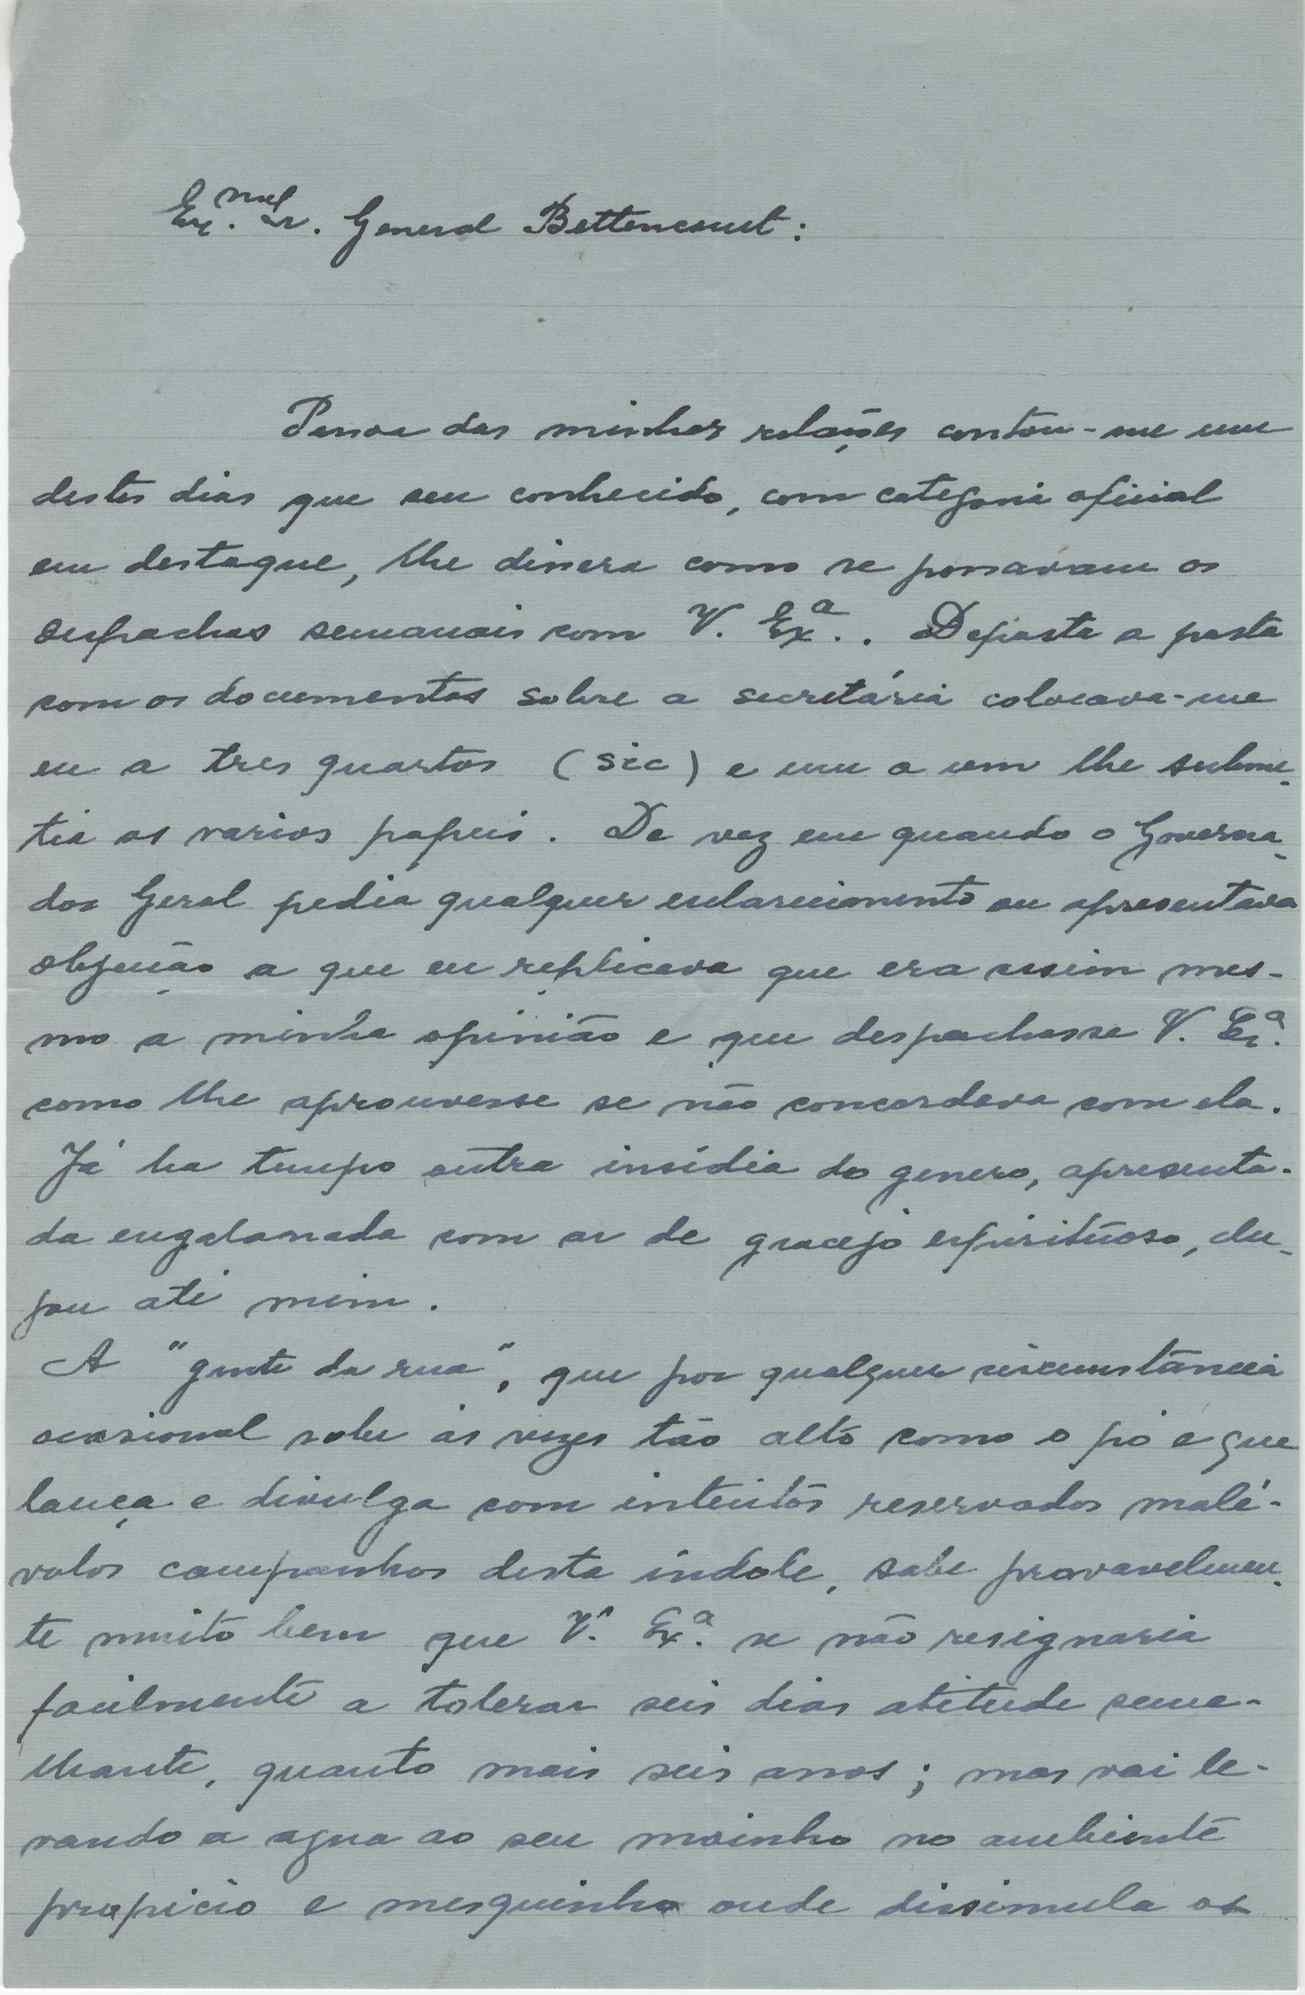 Ex.mo Sr. General Bettencourt:
Pessoa das minhas relações contou-me um
destes dias que seu conhecido, com categoria oficial
em destaque, lhe dissera como se passavam os
despachos semanais com V. Ex.a. Deposta a pasta
com os documentos sobre a secretária colocava-me
eu a tres quartos (sic) e um a um lhe subme-
tia os varios papeis. De vez em quando o Governa-
dor Geral pedia qualquer esclarecimento ou apresentava
objeção a que eu replicava que era assim mes-
mo a minha opinião e que despachasse V. Ex.a
como lhe aprouvesse se não concordava com ela.
Já ha tempo outra insídia do genero, apresenta-
da engalanada com ar de gracejo espirituoso, che-
gou até mim.
A "gente da rua", que por qualquer circumstância
ocasional sobe ás vezes tão alto como o pó e que
lança e divulga com intentos reservados malé-
volos campanhas desta índole, sabe provavelmen-
te muito bem que V. Ex.a se não resignaria
facilmente a tolerar seis dias atitude seme-
lhante, quanto mais seis anos; mas vai le-
vando a agua ao seu moinho no ambiente
propicio e mesquinho onde dissimula os